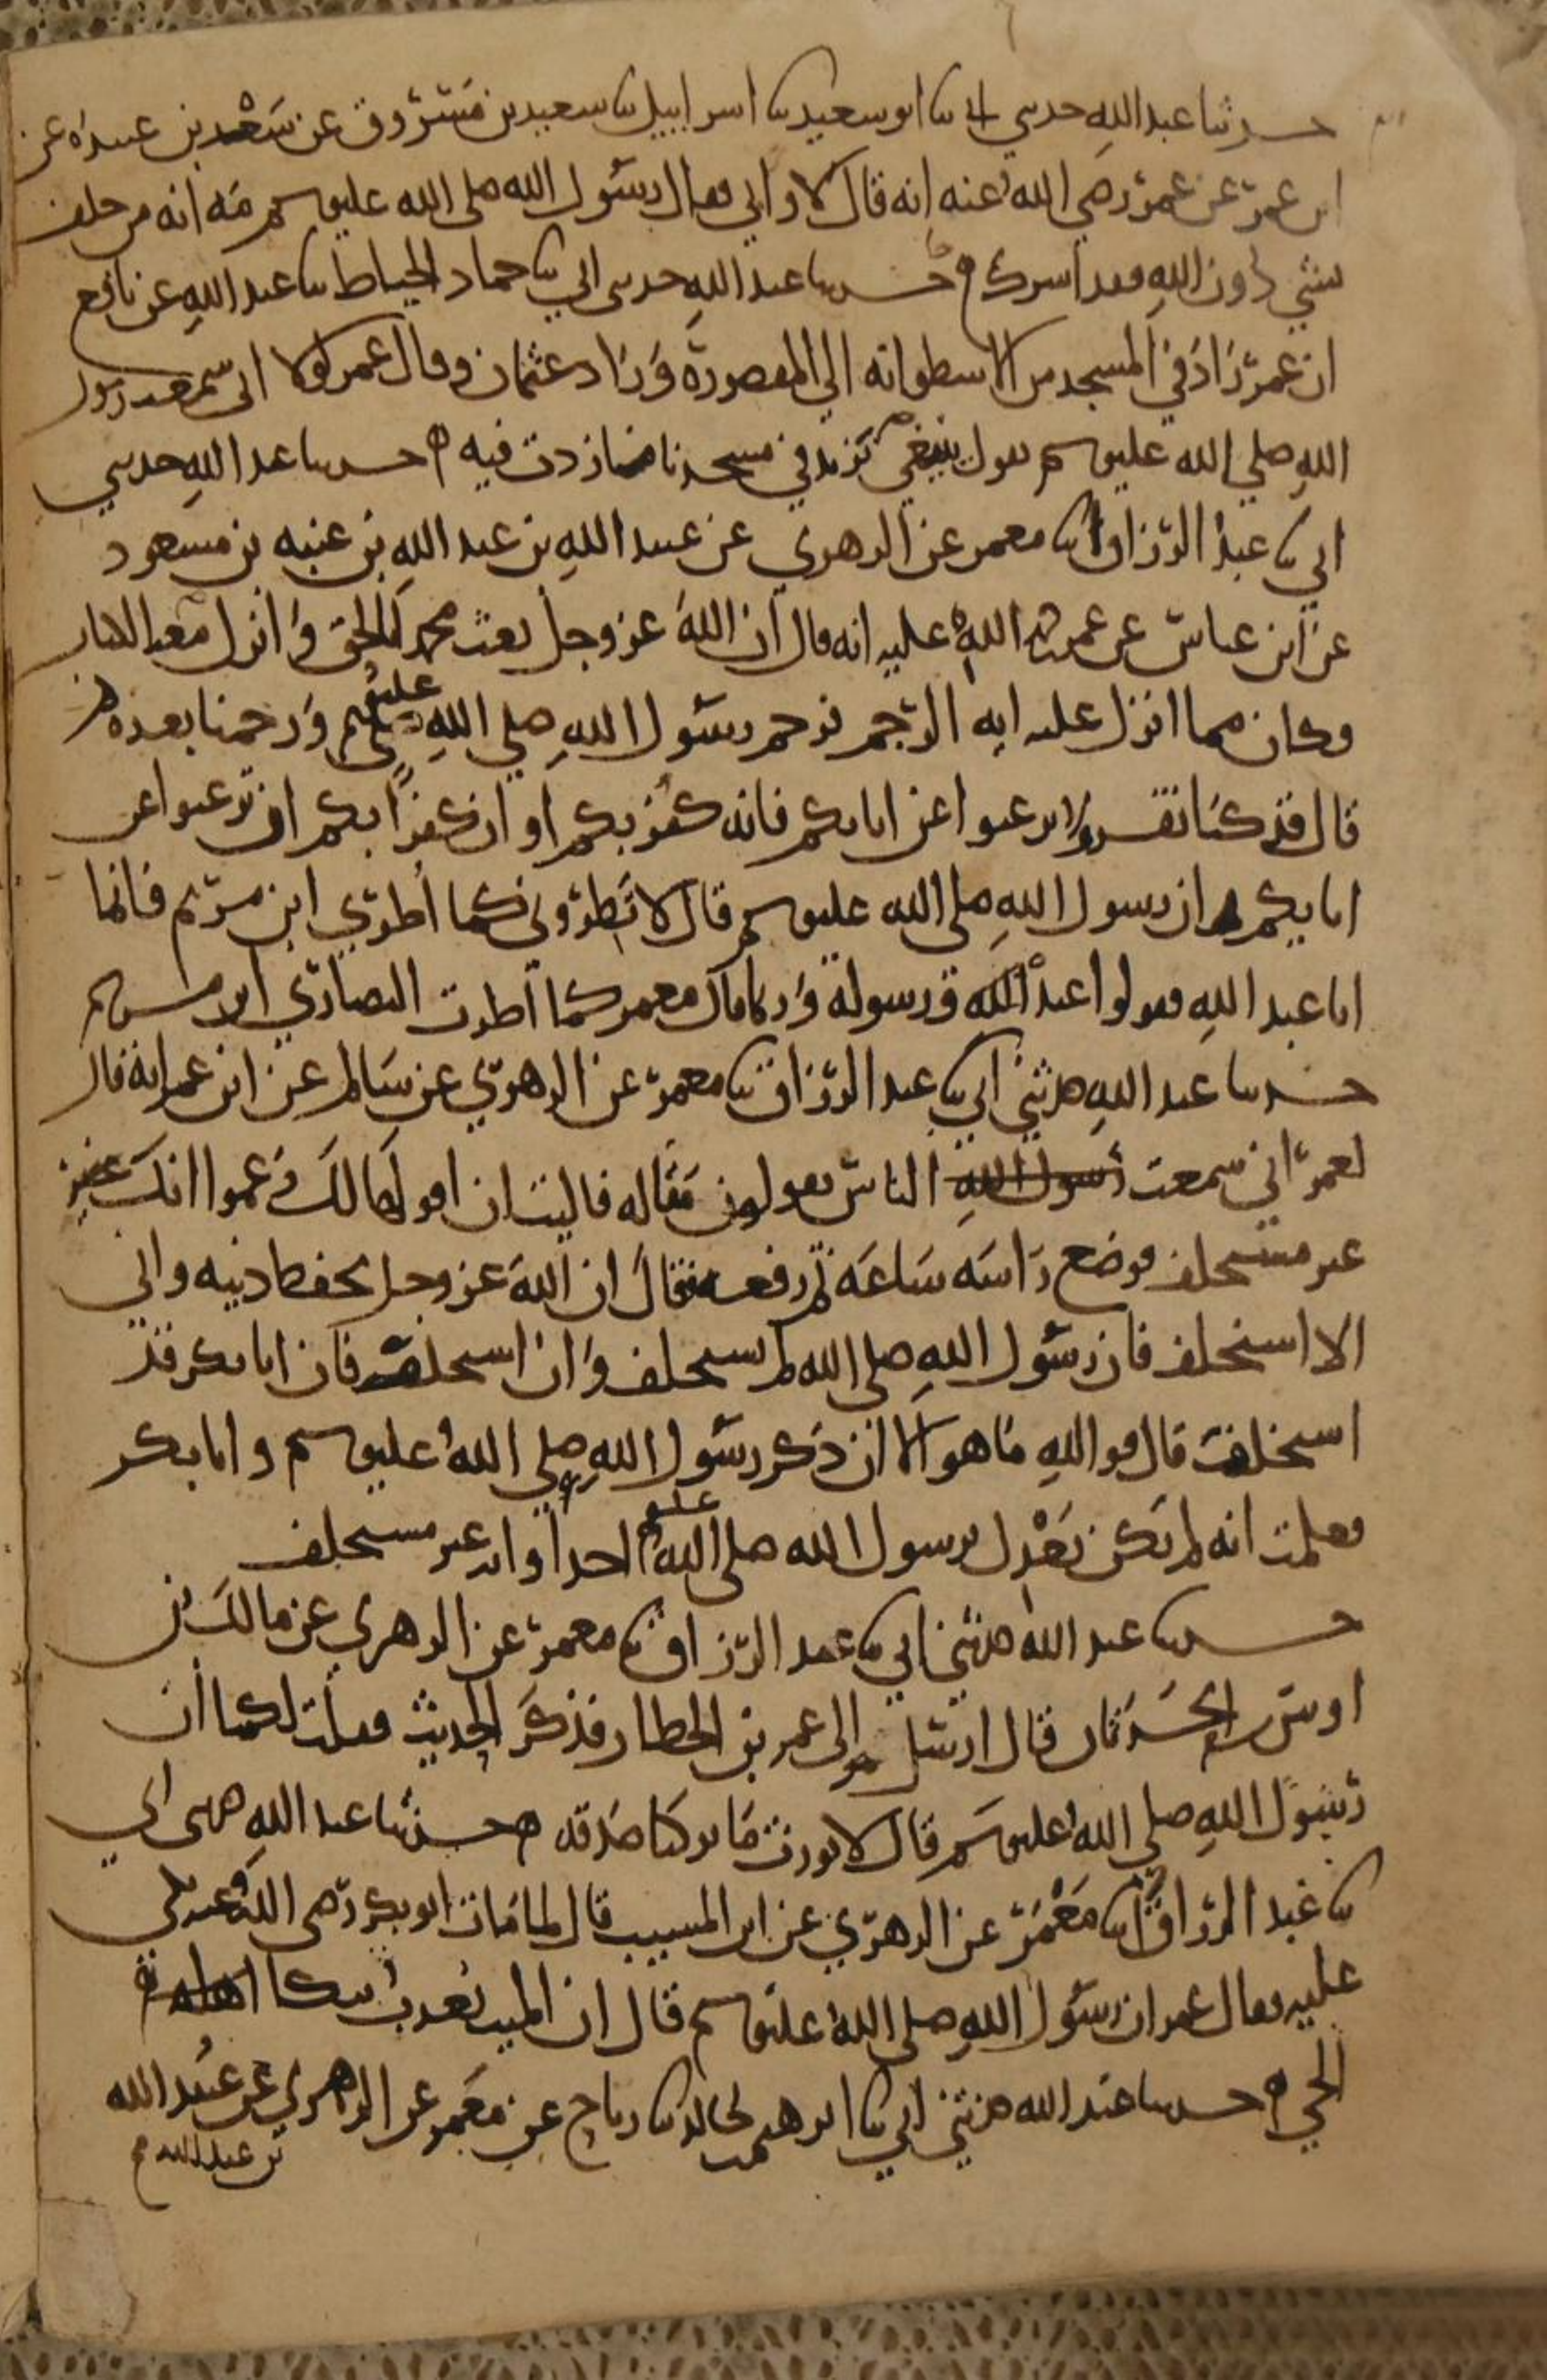 حدثنا عبد الله حدثني ابي ثنا ابو سعيد ثنا اسراييل ثنا سعيد بن مسروق عن سعد بن عبيده عن
ابن عمر عن عمر رضي الله عنه انه قال لا وابي فقال رسول الله صلى الله عليه وسلم مه انه من حلف
بشي دون الله فقد اشرك ه حدثنا عبد الله حدثني ابي ثنا حماد الخياط ثنا عبد الله عن نافع
ان عمر زاد في المسجد من الاسطوانه الى المقصورة وزاد عثمان وقال عمر لولا اني سمعت رسول
الله صلي الله عليه وسلم يقول ينبغي نزيد في مسجدنا ما زدت فيه ه حدثنا عبد الله حدثني
ابي ثنا عبد الرزاق انا معمر عن الزهري عن عبيد الله بن عبد الله بن عتبه بن مسعود
عن ابن عباس عن عمر الله عليه انه قال ان الله عز وجل بعث محمدا بالحق وانزل معه الكتاب
وكان مما انزل عليه ايه الرجم فرجم رسول الله صلي الله عليه وسلم ورجمنا بعده ثم
قال قد كنا نقرا ولا ترغبوا عن ابايكم فانه كفر بكم او ان كفرا بكم ان ترغبوا عن
ابايكم ان رسول الله صلى الله عليه وسلم قال لا تطروني كما اطري ابن مريم فانما
انا عبد الله فقولوا عبد الله ورسوله وربما قال معمر كما اطرت النصارى ابن مريم
حدثنا عبد الله حدثني ابي ثنا عبد الرزاق ثنا معمر عن الزهري عن سالم عن ابن عمر انه قال
لعمر اني سمعت رسول الله الناس يقولون مقاله فاليت ان اقولها لك زعموا انك غير
غير مستخلف فوضع راسه ساعه ثم رفعه فقال ان الله عز وجل يحفظ دينه واني
الا استخلف فان رسول الله صلى الله لم يستخلف وان استخلف فان ابا بكر قد
استخلف قال فوالله ما هو الا ان ذكر رسول الله صلي الله عليه وسلم وابا بكر
فعلمت انه لم يكن يعدل برسول الله صلى الله عليه احدا وانه غير مستخلف
حدثنا عبد الله حدثني ابي ثنا عبد الرزاق ثنا معمر عن الزهري عن مالك بن
اوس بن الحدثان قال ارسل الى عمر بن الخطاب فذكر الحديث فقلت لكما ان
رسول الله صلى الله عليه وسلم قال لا نورث ما تركنا صدقه ه حدثنا عبد الله حدثني ابي
ثنا عبد الرزاق انا معمر عن الزهري عن ابن المسيب قال لما مات ابو بكر رضي الله عنه بكي
عليه فقال عمر ان رسول الله صلى الله عليه وسلم قال ان الميت يعذب ببكا اهله
الحي ه حدثنا عبد الله حدثني ابي ثنا ابرهيم بن خالد ثنا رباح عن معمر عن الزهري عن عبيد الله
بن عبد الله